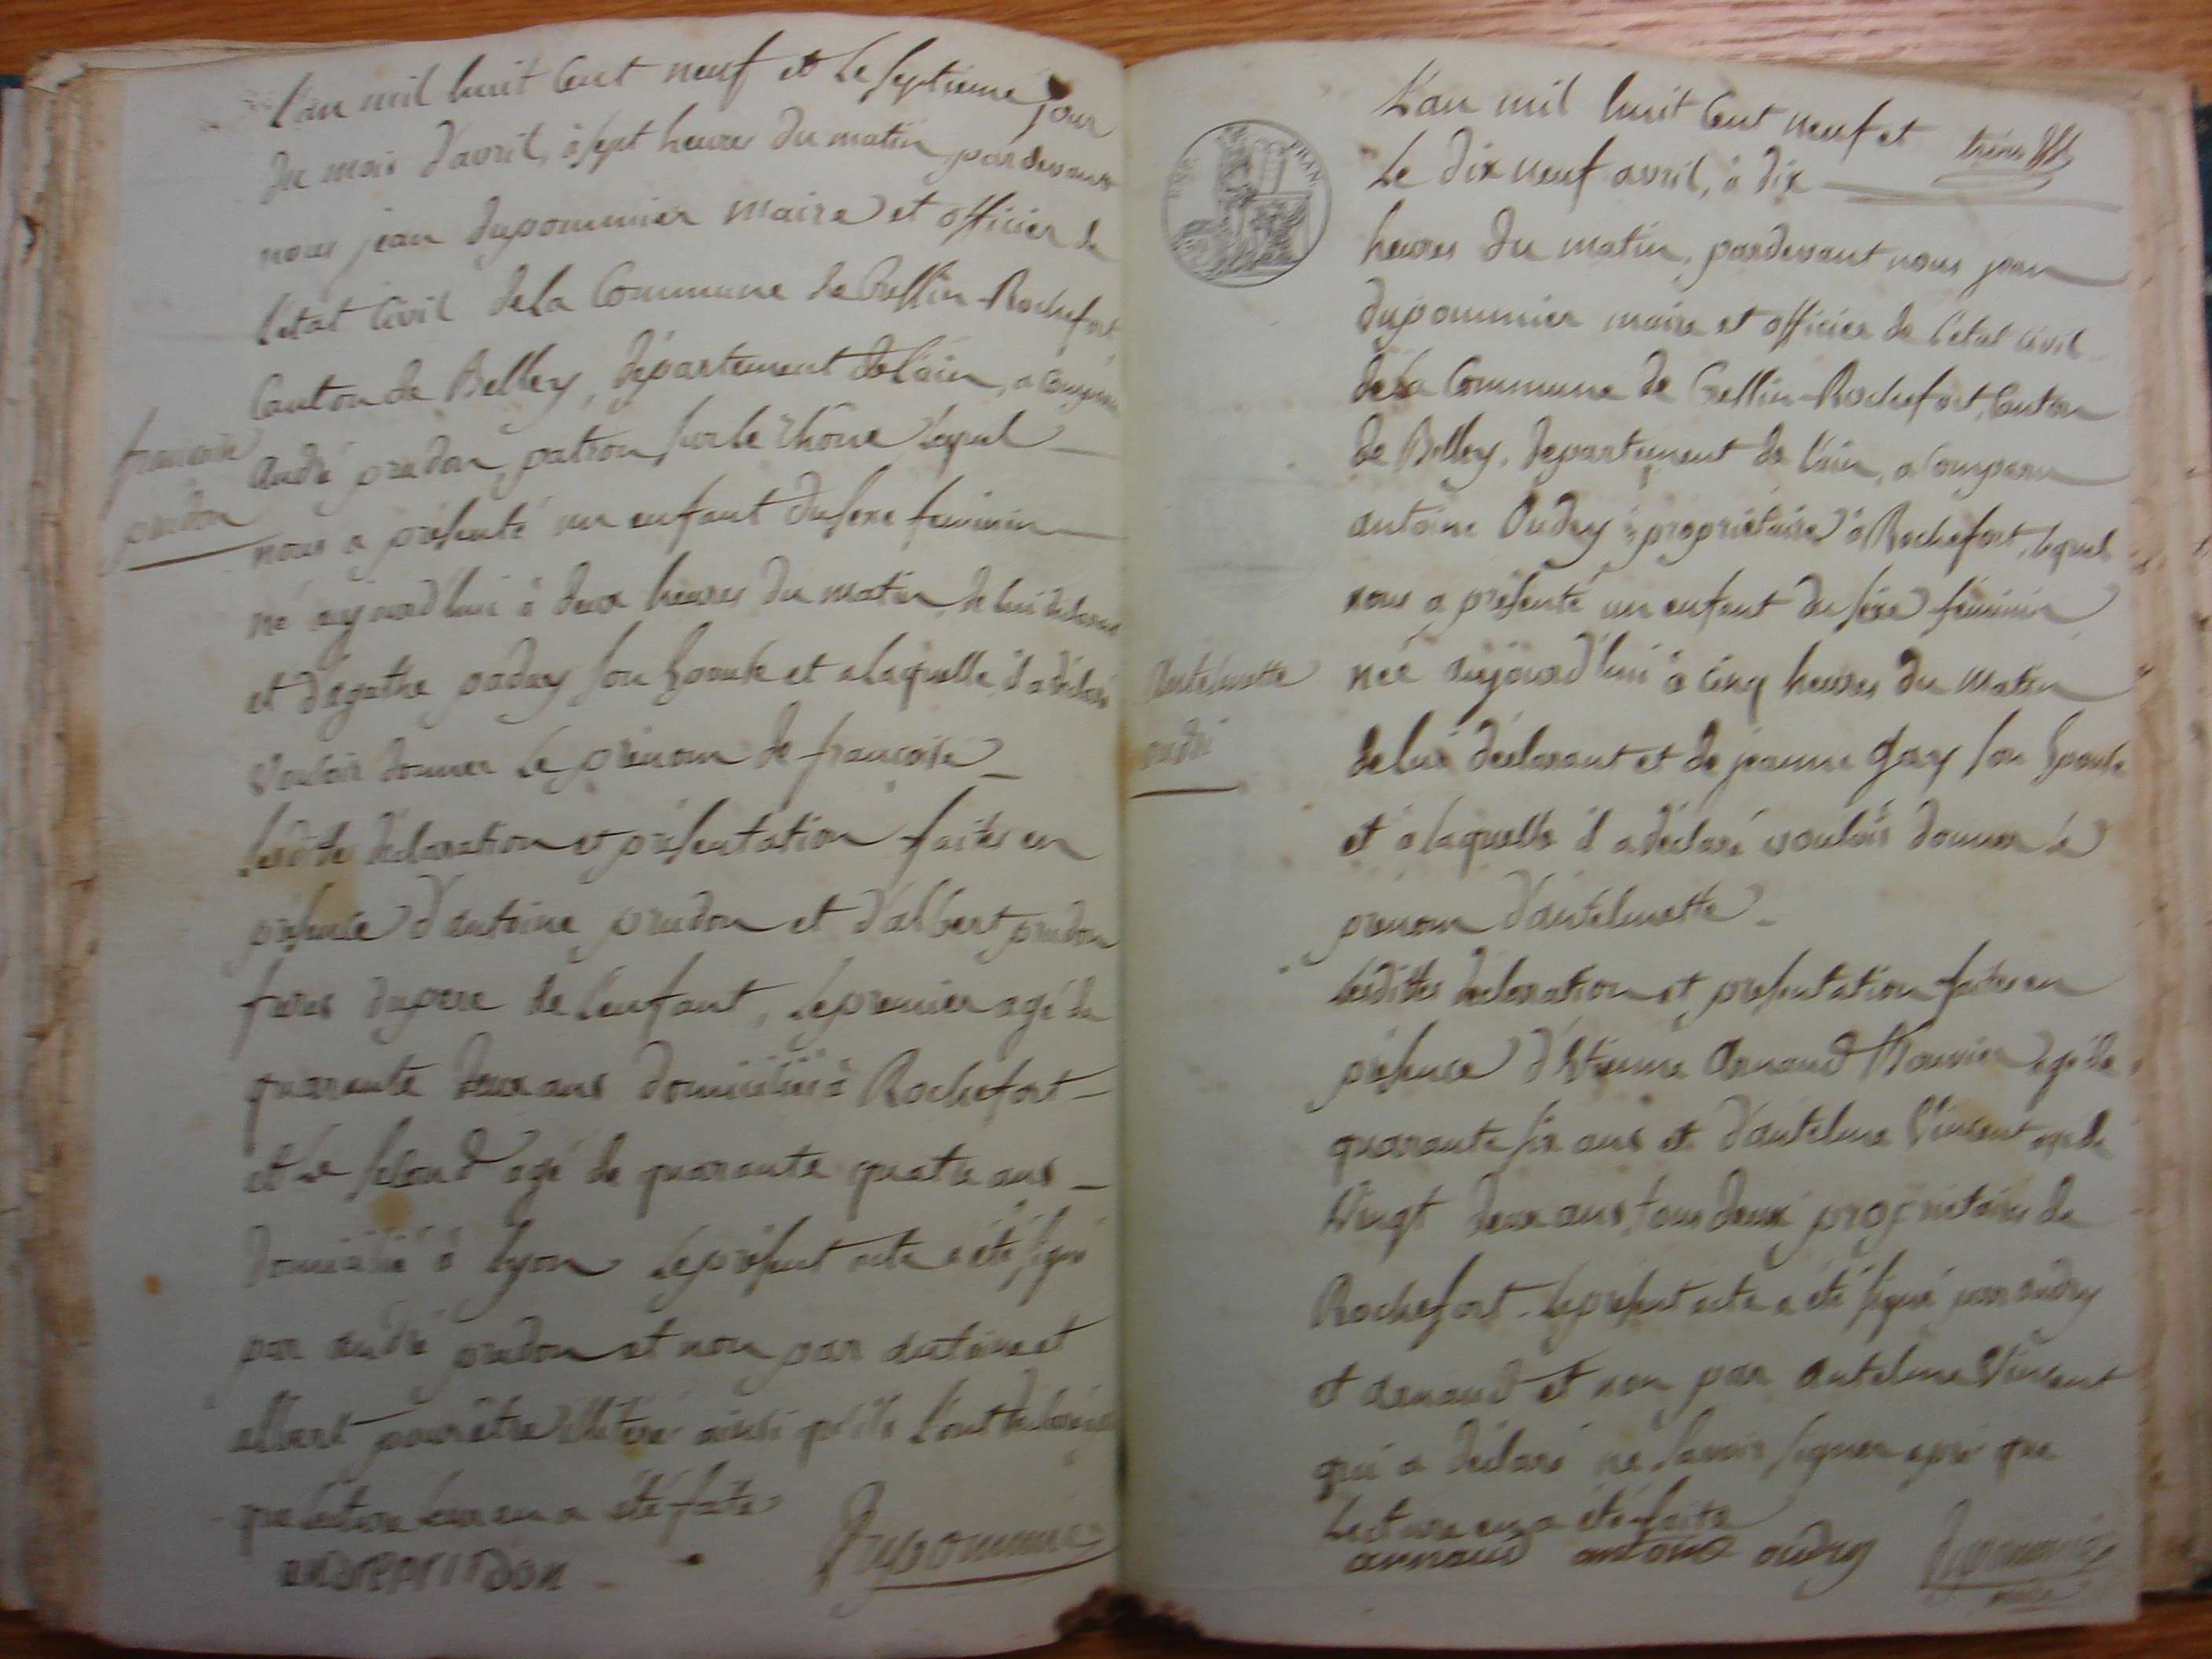 L'an mil huit Cent neuf et le septieme jour
du mois d'avril, à sept heures du matin, pardevant
nous jean dupommier maire et officier de
l'etat Civil de la Commune de Cressin-Rochefort,
Canton de Belley, département de l'ain, a comparu
françoise
prudon
André prudon, patron sur le rhône lequel
nous a présenté un enfant du sexe feminin
né aujourd'hui à deux heures du matin, de lui declarant
et d'agathe son Epouse et a laquelle il a déclaré
vouloir donner le prénom de françoise
lesdittes déclaration et présentation faites en
présence d'antoine prudon et d'albert prudon
freres du pere de l'enfant, le premier agé de
quarante deux ans domicilié à Rochefort
et le second agé de quarante quatre ans
domicilié à lyon le présent acte a été signé
par andré prudon et non par antoine et
albert pour être illiteré ainsi qu'ils l'ont declaré
lecture leur en a été faite
ANDREPRUDON
Dupommier
L'an mil huit Cent neuf et
le dix neuf avril, à dix
heures du matin, pardevant nous jean
dupommier maire et officier de l'etat civil
de la Commune de Cressin-Rochefort, Canton
de Belley, departement de l'ain, a comparu
antoine Oudry propriétaire à Rochefort, lequel
nous a présenté un enfant du sexe féminin
Antelmette
oudri
née aujourd'hui à cinq heures du matin
de lui déclarant et de jeanne gay son Epouse
et a laquelle il a déclaré vouloir donner le
prenom d'antelmette.
lesdittes declaration et presentation faites en
présence d'Etienne Arnaud agé de
quarante six ans et d'antelme Vincent agé de
Vingt deux ans, tous deux propriétaires de
Rochefort. le présent acte a été signé par oudry
et arnaud et non par antelme Vincent
qui a déclaré ne savoir signer apré que
lecture en a été faite
arnaud antoine oudry Dupommier
maire